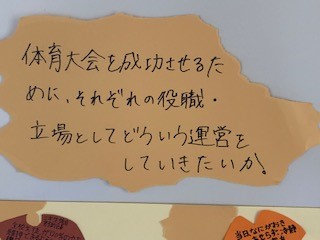 体育大会を成功させるた
めに、それぞれの役職・
立場としてどういう運営を
していきたいか。
当日なにがおき